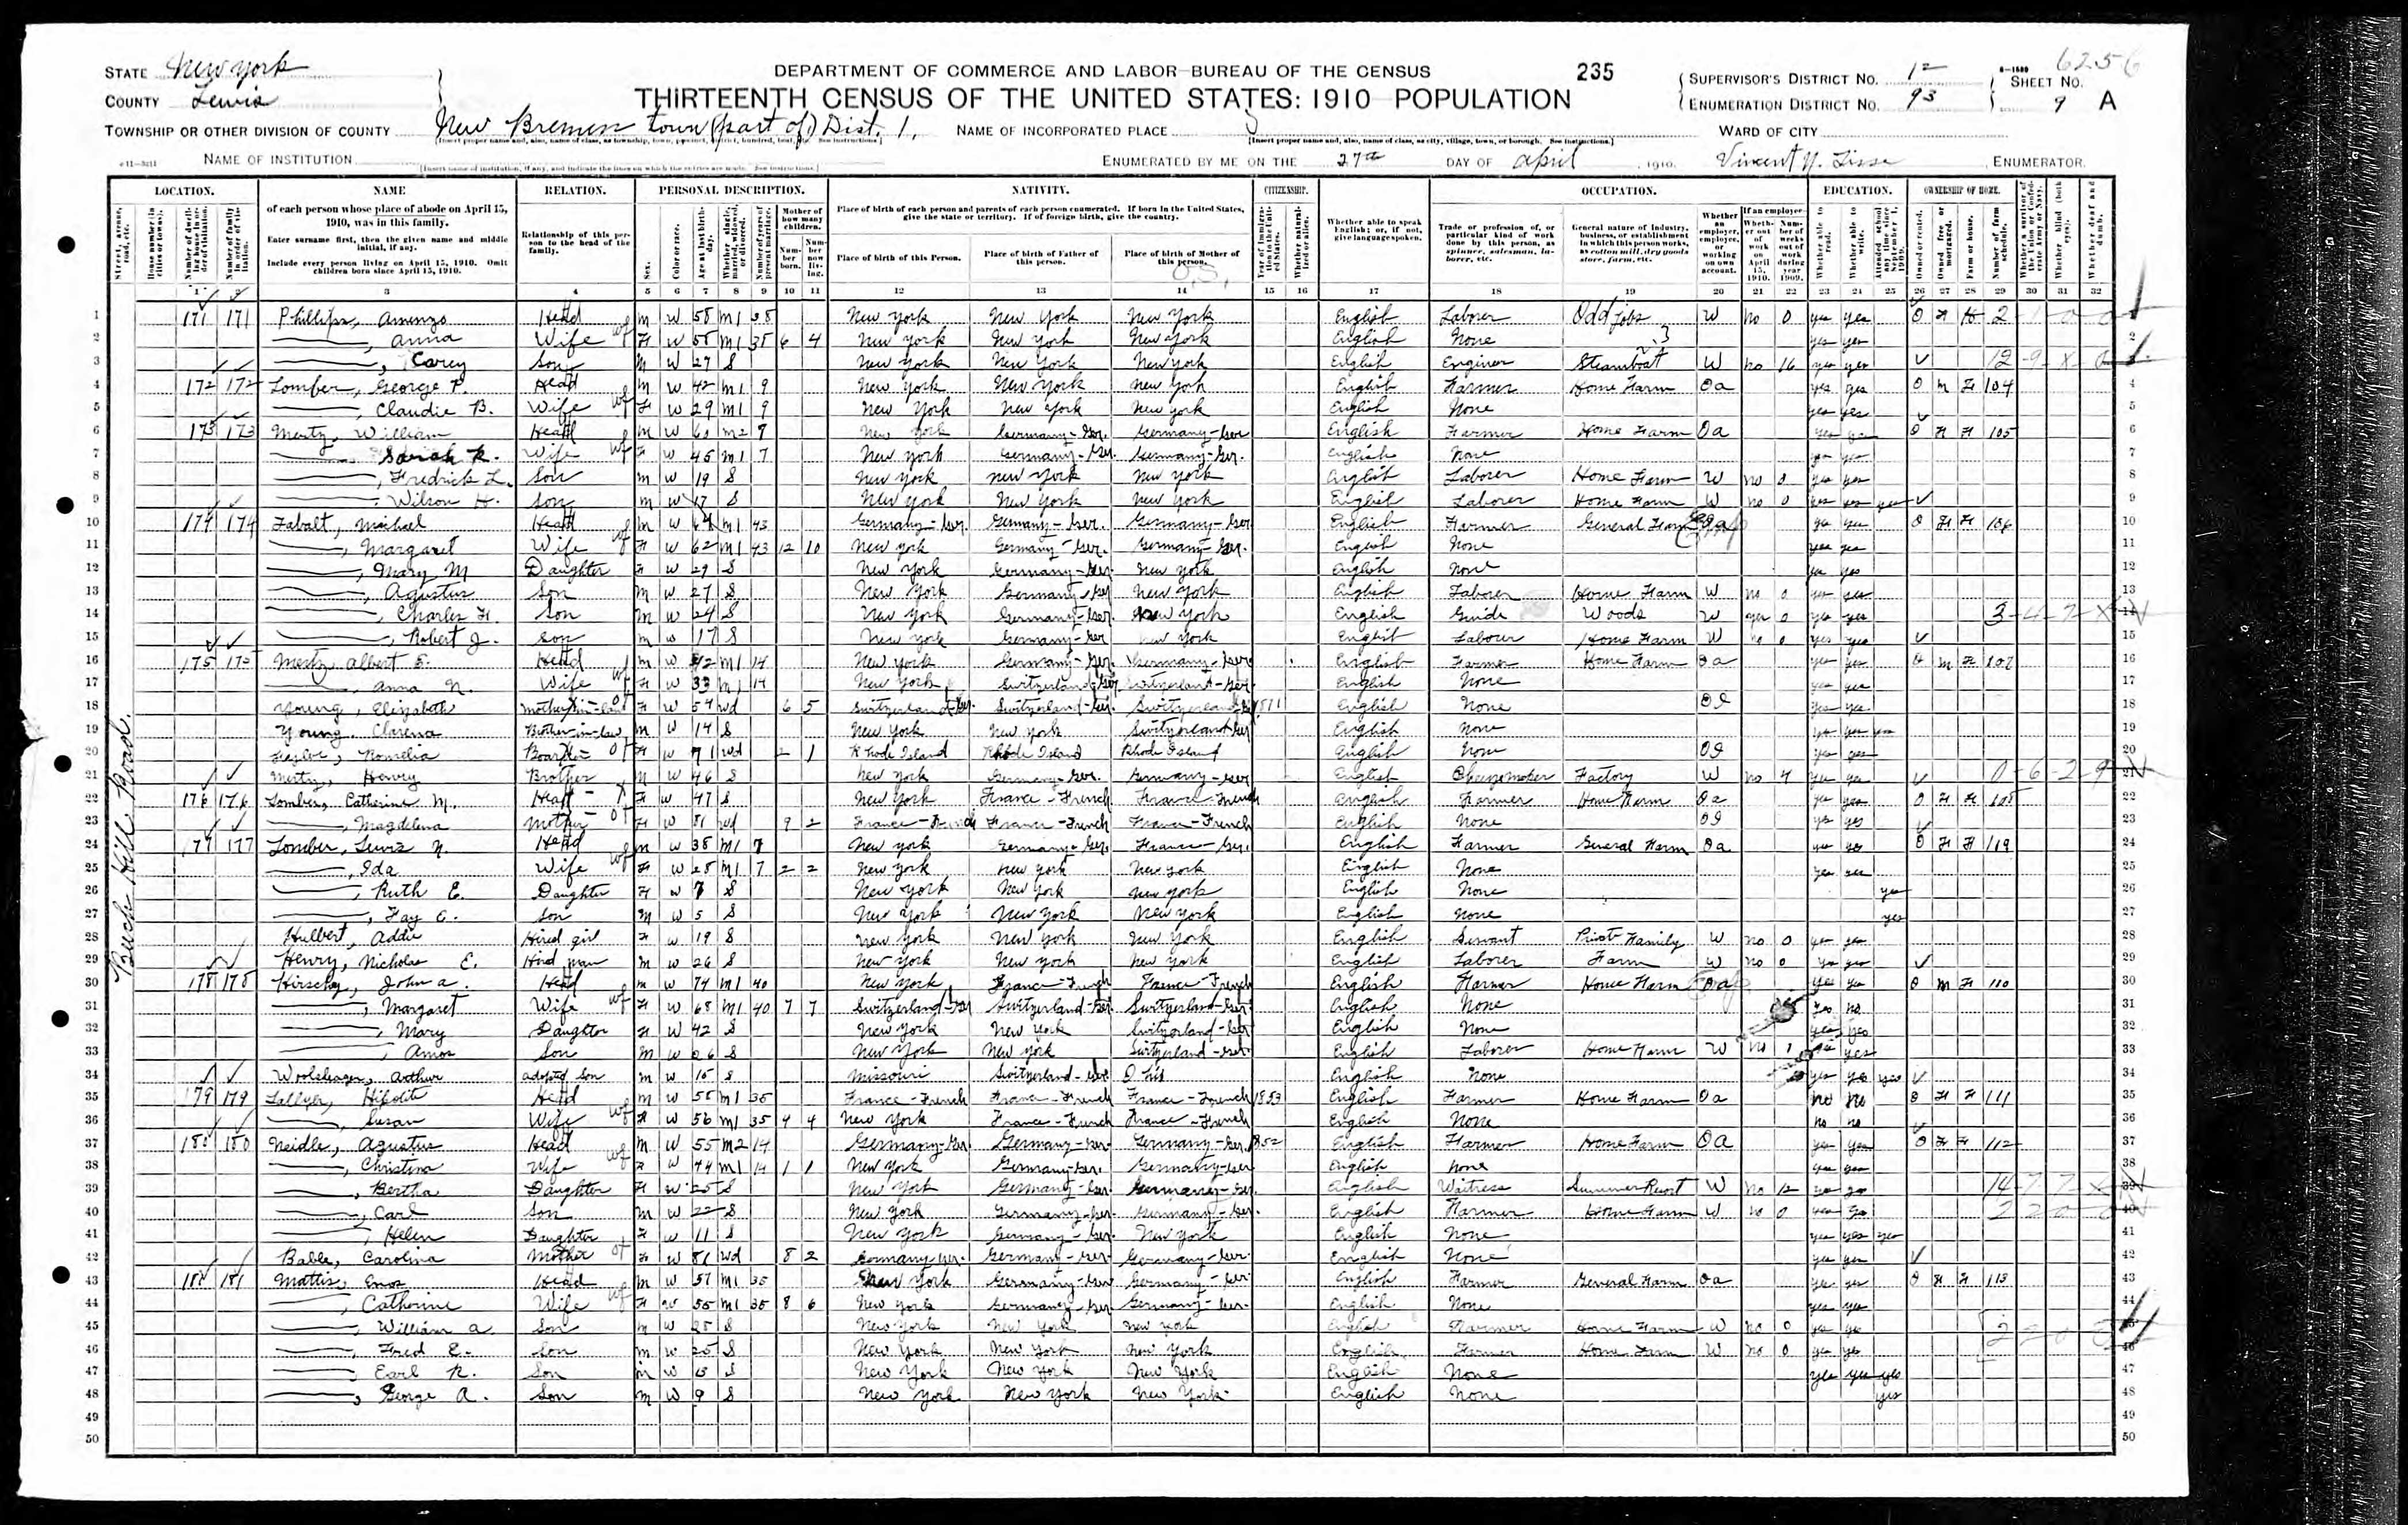 STATE New York
COUNTY Lewis
DEPARTMENT OF COMMERCE AND LABOR—BUREAU OF THE CENSUS
235
SUPERVISOR'S DISTRICT No. 12
6256
THIRTEENTH CENSUS OF THE UNITED STATES: 1910—POPULATION
ENUMERATION DISTRICT No. 93
SHEET No. 9 A
TOWNSHIP OR OTHER DIVISION OF COUNTY New Bremen town (part of) Dist. 1,
NAME OF INCORPORATED PLACE
WARD OF CITY
NAME OF INSTITUTION
ENUMERATED BY ME ON THE 27th DAY OF April, 1910. Vincent N. ENUMERATOR.
LOCATION. NAME RELATION. PERSONAL DESCRIPTION. NATIVITY. CITIZENSHIP. OCCUPATION. EDUCATION. OWNERSHIP OF HOME.
of each person whose place of abode on April 15, 1910, was in this family.
Enter surname first, then the given name and middle initial, if any.
Include every person living on April 15, 1910. Omit children born since April 15, 1910.
Relationship of this person to the head of the family.
Place of birth of each person and parents of each person enumerated. If born in the United States, give the state or territory. If of foreign birth, give the country.
Place of birth of this Person. Place of birth of Father of this person. Place of birth of Mother of this person.
Whether able to speak English; or, if not, give language spoken.
Trade or profession of, or particular kind of work done by this person, as spinner, salesman, laborer, etc.
General nature of industry, business, or establishment in which this person works, as cotton mill, dry goods store, farm, etc.
1 2 3 4 5 6 7 8 9 10 11 12 13 14 15 16 17 18 19 20 21 22 23 24 25 26 27 28 29 30 31 32
Buck Hill Road.
1 171 171 Phillips, Amenzo Head m W 58 m1 38 New York New York New York English Laborer Odd jobs W no 0 yes yes
2 , Anna Wife F W 55 m1 35 6 4 New York New York New York English None yes yes
3 , Carey Son m W 27 S New York New York New York English Enginer Steamboat W no 16 yes yes
4 172 172 Lomber, George P. Head m W 42 m1 9 New York New York New York English Farmer Home Farm Oa yes yes O m F 104
5 , Claudie B. Wife F W 29 m1 9 New York New York New York English None yes yes
6 173 173 Mertz, William Head m W 60 m2 7 New York Germany-Ger. Germany-Ger English Farmer Home Farm Oa O F F 105
7 Sarah R. Wife F W 45 m1 7 New York Germany-Ger. Germany-Ger. English None
8 , Fredrick L. Son m W 19 S New York New York New York English Laborer Home Farm W no 0 yes yes
9 Wilson H. Son m W 17 S New York New York New York English Laborer Home Farm W no 0 yes yes yes
10 174 174 Zabalt, Michael Head m W 64 m1 43 Germany-Ger. Germany-Ger. Germany-Ger English Farmer General Farm O F F 106
11 , Margaret Wife F W 62 m1 43 12 10 New York Germany-Ger. Germany-Ger. English None yes yes
12 , Mary M Daughter F W 29 S New York Germany-Ger. New York English None yes yes
13 , Agustus Son m W 27 S New York Germany-Ger New York English Laborer Home Farm W no 0 yes yes
14 , Charles F. Son m W 24 S New York Germany-Ger. New York English Guide Woods W yes 0 yes yes
15 , Robert J. Son m W 17 S New York Germany-Ger New York English Laborer Home Farm W no 0 yes yes
16 175 175 Mertz Albert E. Head m W 42 m1 14 New York Germany-Ger. Germany-Ger English Farmer Home Farm Oa yes yes O m F 107
17 , Anna N. Wife F W 33 m1 14 New York Switzerland-Ger Switzerland-Ger. English None yes yes
18 Young, Elizabeth Mother-in-law F W 54 wd 6 5 Switzerland-Ger. Switzerland-Ger. Switzerland English None yes yes
19 Young, Clarena Brother-in-law m W 14 S New York New York Switzerland-Ger English None yes yes yes
20 Boarder F W 71 wd 2 1 Rhode Island Rhode Island Rhode Island English None yes yes
21 Mertz, Henry Brother m W 46 S New York Germany-Ger. Germany-Ger English Cheesemaker Factory W no 4 yes yes
22 176 176 Lomber, Catherine M. Head F W 47 S New York France-French France-French English Farmer Home Farm Oa yes yes O F F 108
23 , Magdelena Mother F W 81 wd 9 2 France-French France-French France-French English None yes yes
24 177 177 Lomber, Lewis N. Head m W 38 m1 7 New York Germany-Ger. France-Ger. English Farmer General Farm Oa yes yes O F F 119
25 , Ida Wife F W 28 m1 7 2 2 New York New York New York English None yes yes
26 , Ruth E. Daughter F W 7 S New York New York New York English None yes
27 , Fay C. Son m W 5 S New York New York New York English None yes
28 Hulbert, Addie Hired girl F W 19 S New York New York New York English Servant Private Family W no 0 yes yes
29 Henry, Nicholas E. Hired man m W 26 S New York New York New York English Laborer Farm W no 0 yes yes
30 178 178 Hirschy, John A. Head m W 74 m1 40 New York France-French France-French English Farmer Home Farm Oa yes yes O m F 110
31 , Margaret Wife F W 68 m1 40 7 7 Switzerland-Ger Switzerland-Ger. Switzerland-Ger. English None yes no
32 , Mary Daughter F W 42 S New York New York Switzerland-Ger English None yes yes
33 , Amos Son m W 26 S New York New York Switzerland-Ger. English Laborer Home Farm W no yes
34 Woolshager, Arthur adopted son m W 15 S Missouri Switzerland-Ger. Ohio English None yes yes yes
35 179 179 Lallyer, Hipolite Head m W 55 m1 35 France-French France-French France-French 1853 English Farmer Home Farm Oa no no O F F 111
36 , Susan Wife F W 56 m1 35 4 4 New York France-French France-French English None no no
37 180 180 Neidle, Agustus Head m W 55 m2 14 Germany-Ger. Germany-Ger. Germany-Ger. 1852 English Farmer Home Farm Oa yes yes O F F 112
38 , Christina Wife F W 44 m1 14 1 1 New York Germany-Ger. Germany-Ger English None yes yes
39 , Bertha Daughter F W 25 S New York Germany-Ger. Germany-Ger. English Waitress Summer Resort W no 12
40 , Carl Son m W 22 S New York Germany-Ger. Germany-Ger. English Farmer Home Farm W no 0 yes yes
41 , Helen Daughter F W 11 S New York Germany-Ger. New York English None yes yes yes
42 Bable, Carolina Mother F W 81 wd 8 2 Germany-Ger. Germany-Ger. Germany-Ger. English None yes yes
43 181 181 Mattis, Enos Head m W 57 m1 35 New York Germany-Ger Germany-Ger English Farmer General Farm Oa yes yes O F F 113
44 , Catherine Wife F W 55 m1 35 8 6 New York Germany-Ger. Germany-Ger. English None yes yes
45 , William A. Son m W 28 S New York New York New York English Farmer Home Farm W no 0 yes yes
46 , Fred E. Son m W 25 S New York New York New York English Farmer Home Farm W no 0 yes yes
47 , Earl R. Son m W S New York New York New York English None yes yes yes
48 , George A. Son m W 9 S New York New York New York English None yes
49
50